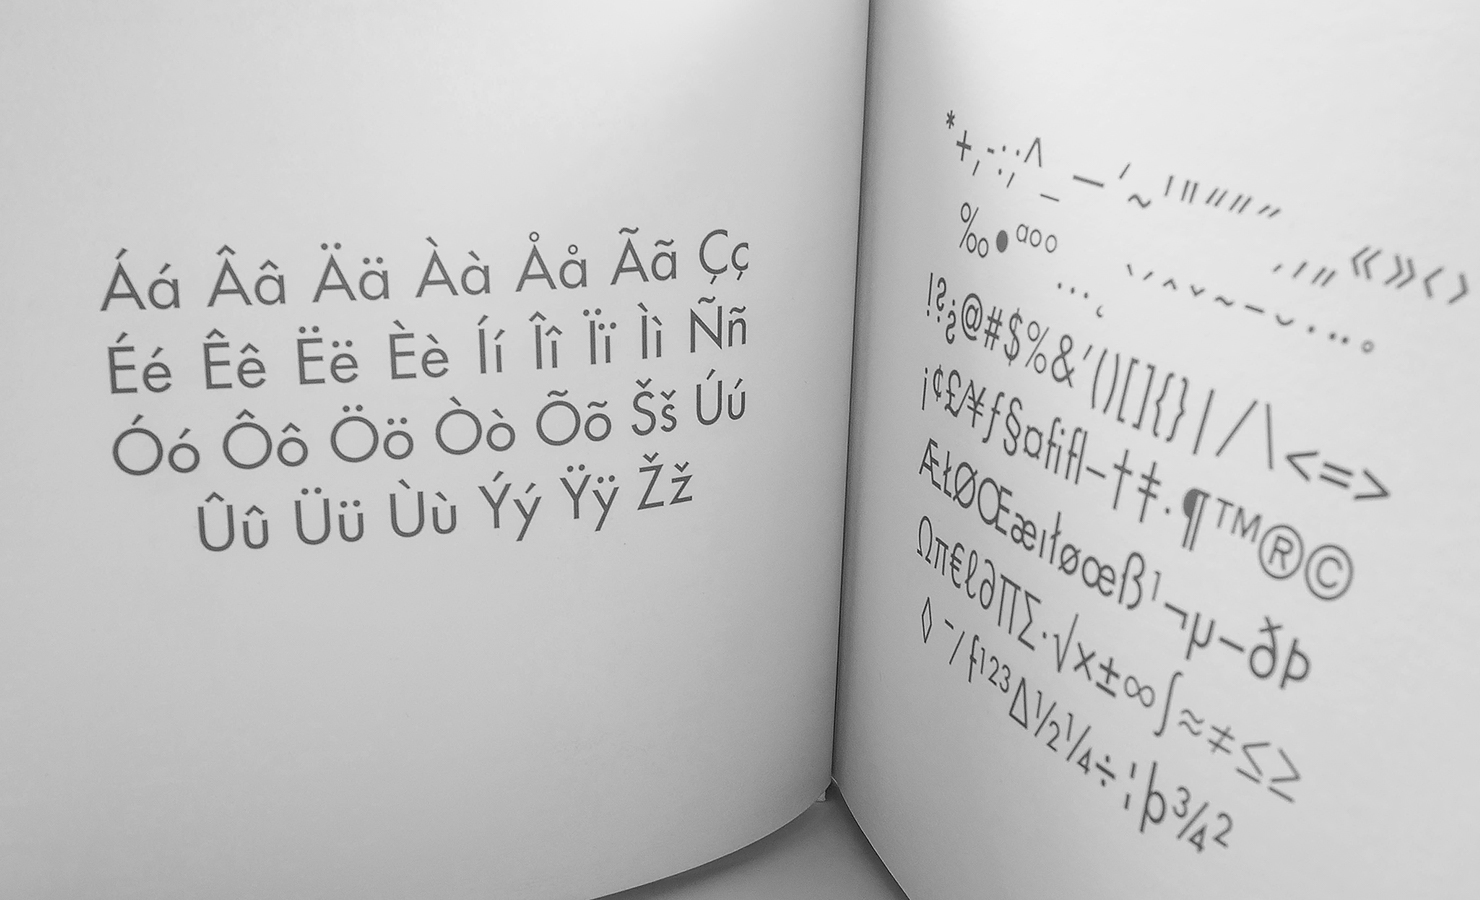 Áá Ââ Ää Àà Åå Ãã Çç
Éé Êê Ëë Èè Íí Îî Ïï Ìì Ññ
Óó Ôô Öö Òò Õõ Šš Úú
Ûû Üü Ùù Ýý Ÿÿ Žž
*+,-.:;^_—
‰•ªºo … ‚ „ «»‹›
!?¿@#$%&'()[]{}|/\<=>
¡¢£/¥ƒ§¤fifl–†‡·¶™®©
ÆŁØŒæıłøœß¹¬µ–ðÞ
Ωπ€ℓ∂∏∑·√×±∞∫≈≠≤≥
◊¯/f¹²³∆½¼÷¦þ¾²